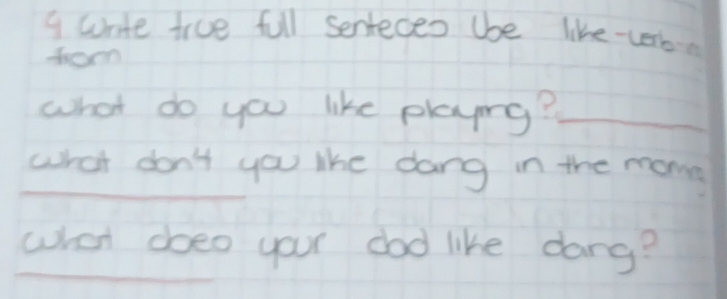 4 Write true full senteces Use like-verb-
from
what do you like playing?
what don't you like doing in the morning
what does your dad like doing?